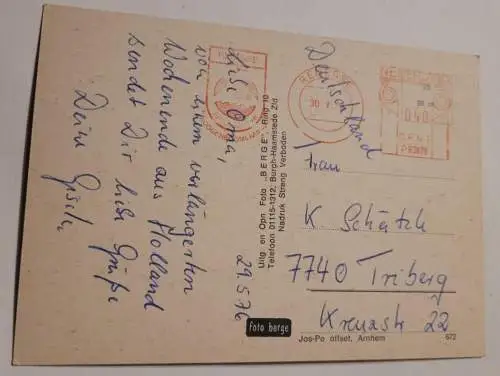 Liebe Oma,
von einem verlängerten
Wochenende aus Holland
sendet Dir liebe Grüße
Deine
29.5.76
Uitg en Opn Foto „BERGE", Ring 10
Telefoon 01115-1312, Burgh-Haamstede Zld
Nadruk Streng Verboden
foto berge
Jos-Pe offset, Arnhem
672
Deutschland
Frau
K Schätzle
7740 Triberg
Kreuzstr 22
30
040